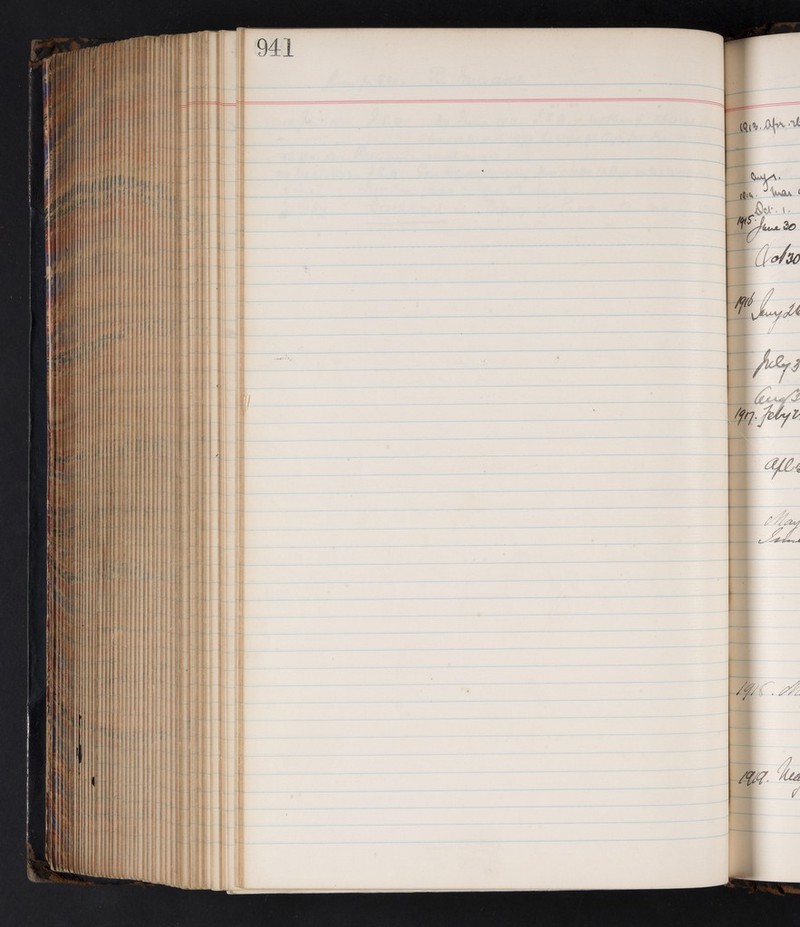 941
1913. Apr. 26
Aug 1.
1914. Mar
Oct. 1.
1915. June 30
Oct 30
1916 Jany 26
July 3
Aug 3
1917. Feby 2
Apl 3
May
June
1918.
1919.